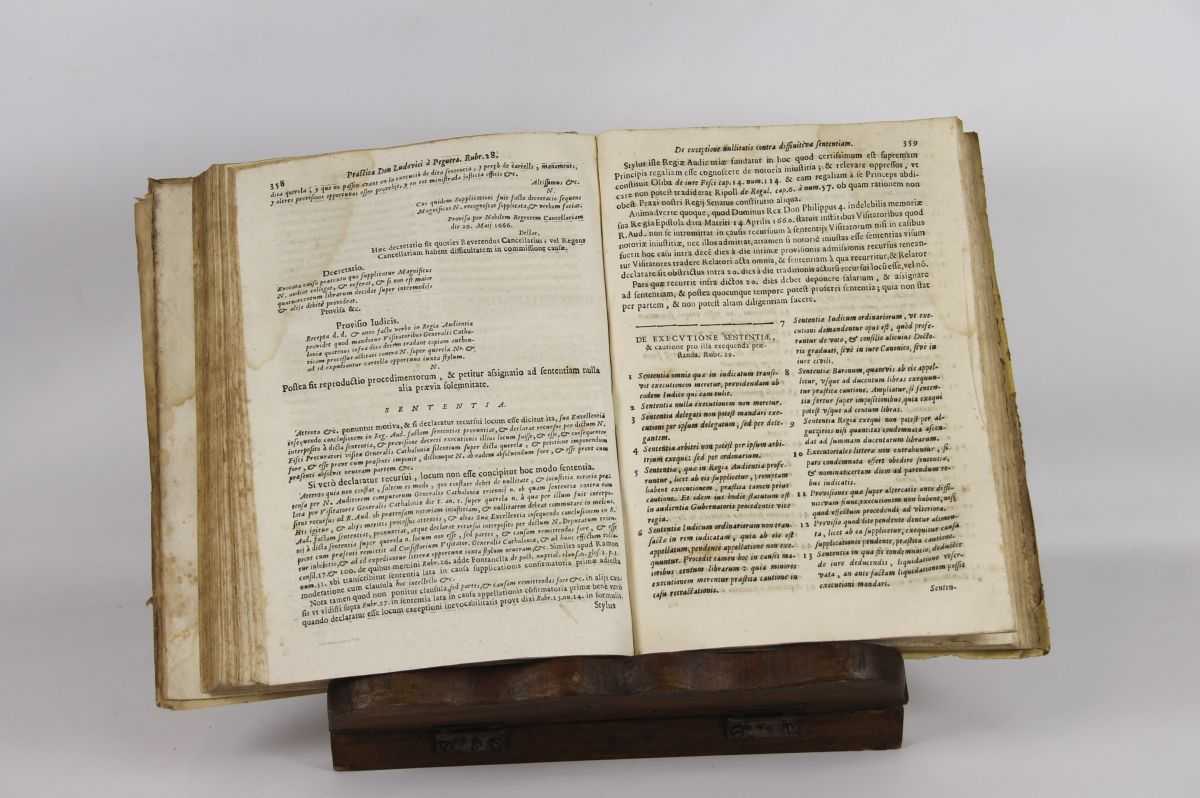 358 Practica Don Ludovici à Peguera. Rubr. 28.
dita querela; y que no passin avant en la execució de dita sentencia; y perçò de cartells; manaments,
y altres provisions opportunas esser proveït, y en tot ministrada justicia officis &c.
Altissimus &c.
N.
Cui quidem Supplicationi fuit facta decretatio sequens
Magnificus N. recognoscat supplicata, & verbum faciat.
Provisa per Nobilem Regentem Cancellariam
die 20. Maij 1666.
Dellar.
Hæc decretatio fit quoties Reverendus Cancellarius, vel Regens
Cancellariam habent difficultatem in commissione causæ.
Decretatio.
Evocata causa prætextu quo supplicatur Magnificus
N. audiat colligat, & referat, & si non est maior
quatuorcentum librarum decidat super intromissis
& aliis debitè provideat.
Provisa &c.
Provisio Iudicis.
Recepta d. d. & ante facto verbo in Regia Audientia
providet quod mandetur Visitatoribus Generalis Catha-
loniæ quatenus infra dies decem tradant copiam authen-
ticam processus actitati coram N. super querela N. &
ad id expediantur cartella opportuna iuxta stylum.
N.
Postea fit reproductio procedimentorum, & petitur assignatio ad sententiam nulla
alia prævia solemnitate.
SENTENTIA.
Attento &c. ponuntur motiva, & si declaratur recursui locum esse dicitur ita, sua Excellentia
insequendo conclusionem in Reg. Aud. factam sententiat pronuntiat, & declarat recursui per dictum N.
interposito à dicta sententia, & provisione decreti executionis illius locum fuisse, & esse, & consequenter
Fisci Procuratori visitæ Generalis Cathaloniæ silentium super dicta querela, & petitione imponendum
fore, & esse prout cum præsenti imponit, dictumque N. ab eadem absolvendum fore, & esse prout cum
præsenti absolvit neutram partem &c.
Si verò declaratur recursui, locum non esse concipitur hoc modo sententia.
Attento quia non constat, saltem eo modo, quo constare debet de nullitate, & iniustitia notoria præ-
tensa per N. Auditorem computorum Generalis Cathaloniæ triennij n. ob quam sententia contra eum
lata per Visitatores Generalis Cathaloniæ die t. an. t. super querela n. à qua per illum fuit interpo-
situs recursus ad R. Aud. ob prætensam notoriam iniustitiam, & nullitatem debeat commutare in melius.
His igitur, & aliis meritis processus attentis, & alias Sua Excellentia insequendo conclusionem in R.
Aud. factam sententiat, pronuntiat, atque declarat recursui interposito per dictum N. Deputatum trien-
nij à dicta sententia super querela n. locum non esse, sed partes, & causam remittendas fore, & esse
prout cum præsenti remittit ad Consistorium Visitator. Generalis Cathaloniæ, & ad hunc effectum tolli-
tur inhibitio, & ad id expediantur litteræ opportunæ iuxta stylum neutram &c. Similes apud Ramon
consil. 17. & 100. de quibus memini Rubr. 20. adde Fontanella de pact. nuptial. claus. 6. glos. 2. p. 3.
num. 31. ubi transcribitur sententia lata in causa supplicationis confirmatoria primæ adiecta
moderatione cum clausula hoc intellecto &c.
Nota tamen quod non ponitur clausula, sed partes, & causam remittendas fore &c. in aliis cau-
sis ut vidisti supra Rubr. 27. in sententia lata in causa appellationis confirmatoria primæ bene verò
quando declaratur esse locum exceptioni inevocabilitatis prout dixi Rubr. 13. nu. 14. in formula.
Stylus
De exceptione nullitatis contra diffinitivã sententiam. 359
Stylus iste Regiæ Audientiæ fundatur in hoc quod certissimum est supremam
Principis regaliam esse cognoscere de notoria iniustitia; & relevare oppressos, ut
constituit Oliba de iure Fisci cap. 14. num. 114. & eam regaliam à se Princeps abdi-
care non potest tradiderat Ripoll de Regal. cap. 6. à num. 57. ob quam rationem non
obest Praxi nostri Regij Senatus constitutio aliqua.
Animadverte quoque, quod Dominus Rex Don Philippus 4. indelebilis memoriæ
sua Regia Epistola data Matriti 14 Aprilis 1660. statuit institibus Visitatoribus quod
R. Aud. non se intromittat in causis recursuum à sententijs Visitatorum nisi in casibus
notoriæ iniustitiæ, nec illos admittat, attamen si notoriè iniustas esse sententias visum
fuerit hoc casu intra decẽ dies à die intimæ provisionis admissionis recursus tenean-
tur Visitatores tradere Relatori acta omnia, & sententiam à qua recurritur, & Relator
declarare sit obstrictus intra 20. dies à die traditionis actorũ recursui locũ esse, vel nõ.
Pars quæ recurrit infra dictos 20. dies debet deponere salarium, & assignare
ad sententiam, & postea quocumque tempore potest proferri sententia; quia non stat
per partem, & non potest aliam diligentiam facere.
DE EXECUTIONE SENTENTIÆ,
& cautione pro illa exequenda præ-
standa. Rubr. 29.
1 Sententia omnis quæ in iudicatum transi-
vit executionem meretur, providendam ab
eodem Iudice qui eam tulit.
2 Sententia nulla executionem non meretur.
3 Sententia delegati non potest mandari exe-
cutioni per ipsum delegatum, sed per dele-
gantem.
4 Sententia arbitri non potest per ipsum arbi-
trum exequi; sed per ordinarium.
5 Sententiæ, quæ in Regia Audientia profe-
runtur, licet ab eis supplicetur, promptam
habent executionem, præstita tamen prius
cautione. Et idem ius hodie statutum est
in audientia Gubernatoris procedente vice
regia.
6 Sententiæ Iudicum ordinariorum non tran-
sactæ in rem iudicatam, quia ab eis est
appellatum, pendente appellatione non exe-
quuntur. Procedit tamen hoc in causis ma-
ioribus centum librarum quia minores
executionem merentur præstita cautione in
casu retractationis.
7 Sententiæ Iudicum ordinariorum, ut exe-
cutioni demandentur opus est, quòd profe-
rantur de voto, & consilio alicuius Docto-
ris graduati, sive in iure Canonico, sive in
iure civili.
8 Sententiæ Baronum, quamvis ab eis appel-
letur, usque ad ducentum libras exequun-
tur, præstita cautione. Ampliatur, si senten-
tia fertur super impositionibus, quia exequi
potest usque ad centum libras.
9 Sententia Regia exequi non potest per al-
guzirios nisi quantitas condemnata ascen-
dat ad summam ducentarum librarum.
10 Executoriales litteræ non extrahuntur, si
pars condemnata offert obedire sententiæ,
& nominat certum diem ad parendum re-
bus iudicatis.
11 Provisiones quæ super altercato ante diffi-
nitivam fiunt, executionem non habent, nisi
quoad effectum procedendi ad ulteriora.
12 Provisio quæ lite pendente dantur alimen-
ta, licet ab ea supplicetur, exequitur causa
supplicationis pendente, præstita cautione.
13 Sententia in qua fit condemnatio, deductis
de iure deducendis, liquidatione reser-
vata, an ante factam liquidationem possit
executioni mandari.
Senten-